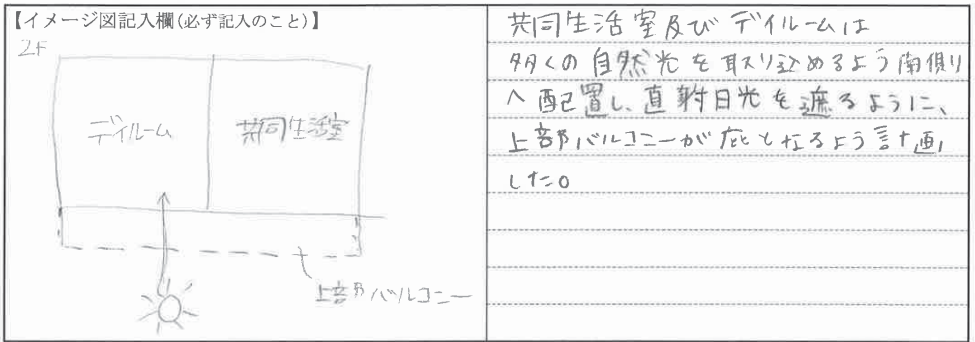 【イメージ図記入欄(必ず記入のこと)】
2F
デイルーム
共同生活室
上部バルコニー
共同生活室及びデイルームは
多くの自然光を取り込めるよう南側
へ配置し、直射日光を遮るように、
上部バルコニーが庇となるよう計画
した。